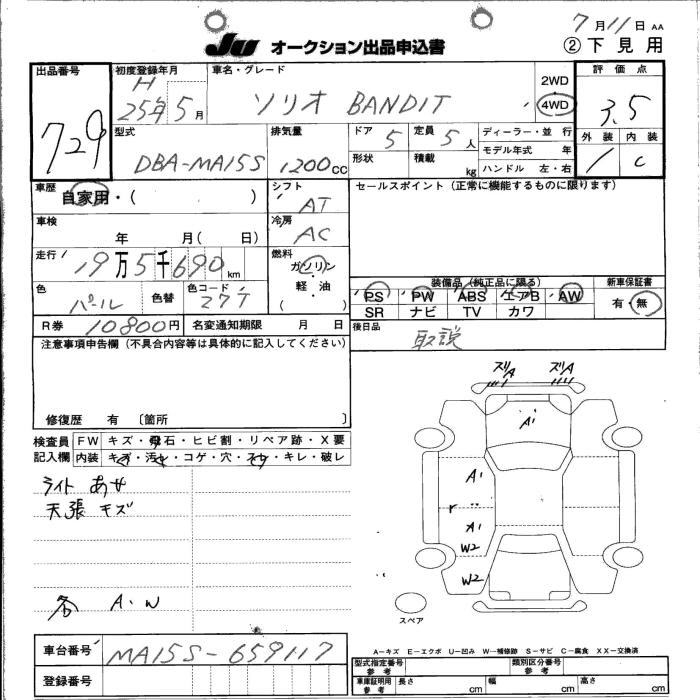 7月11日 AA
JU オークション出品申込書 ②下見用
出品番号 初度登録年月 車名・グレード 2WD 評価点
729 H 25年5月 ソリオ BANDIT 4WD 3.5
型式 排気量 ドア 5 定員 5人 ディーラー・並 行 外装 内装
DBA-MA15S 1200cc 形状 積載 kg モデル年式 年 1 C
ハンドル 左・右
車歴 自家用・( ) シフト AT セールスポイント (正常に機能するものに限ります)
車検 年 月( 日) 冷房 AC
走行 19万5千690km 燃料 ガソリン
軽・油
( )
装備品 (純正品に限る) 新車保証書
色 パール 色替 色コード Z7T PS PW ABS エアB AW 有・無
SR ナビ TV カワ
R券 10800円 名変通知期限 月 日 後日品 取説
注意事項申告欄 (不具合内容等は具体的に記入してください)
修復歴 有 〔箇所 〕
検査員 記入欄 FW キズ・飛石・ヒビ割・リペア跡・X要
内装 キズ・汚れ・コゲ・穴・スレ・キレ・破レ
ライト あせ
天張 キズ
各 A・W
ズリA ズリA
A1
A1
r
A1
W2
W2
スペア
車台番号 MA15S-659117
登録番号
A-キズ E-エクボ U-凹み W-補修跡 S-サビ C-腐食 XX-交換済
型式指定番号 参考 類別区分番号 参考
車庫証明用 参考 長さ cm 幅 cm 高さ cm